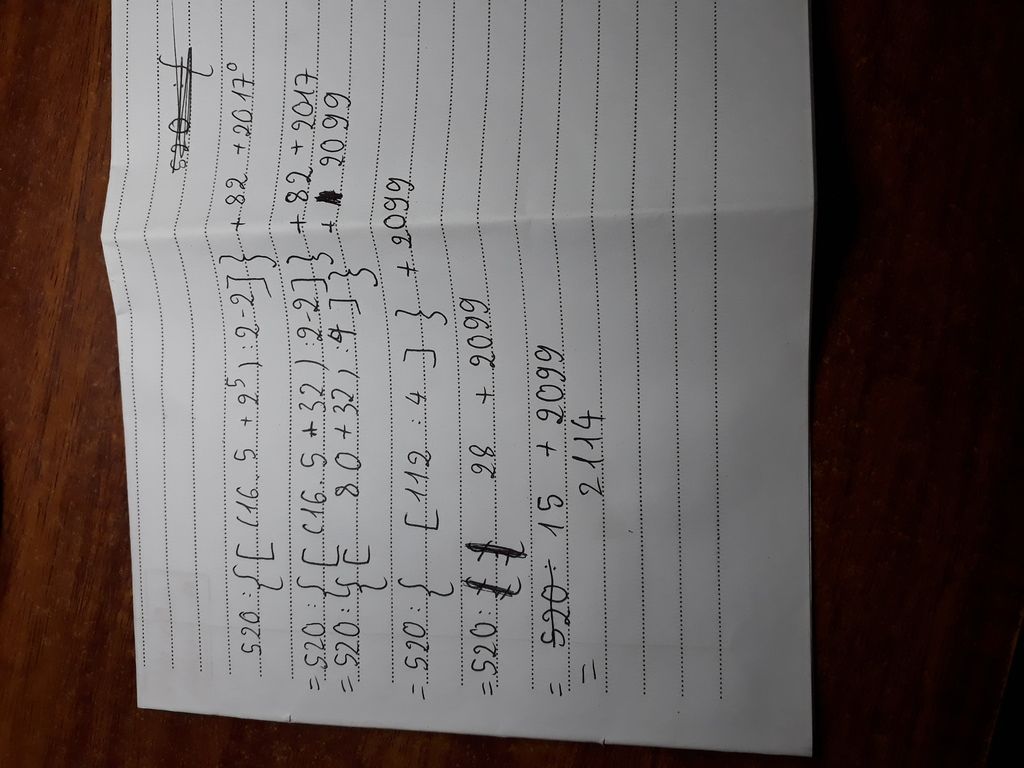 520 : {
520 : {[(16 . 5 + 2⁵) : 2 - 2]} + 82 + 2017⁰
= 520 : {[(16 . 5 + 32) : 2 - 2]} + 82 + 2017
= 520 : {[ 80 + 32) : 4 ]} + 2099
= 520 : { [112 : 4 ] } + 2099
= 520 : 28 + 2099
= 520 : 15 + 2099
= 2114